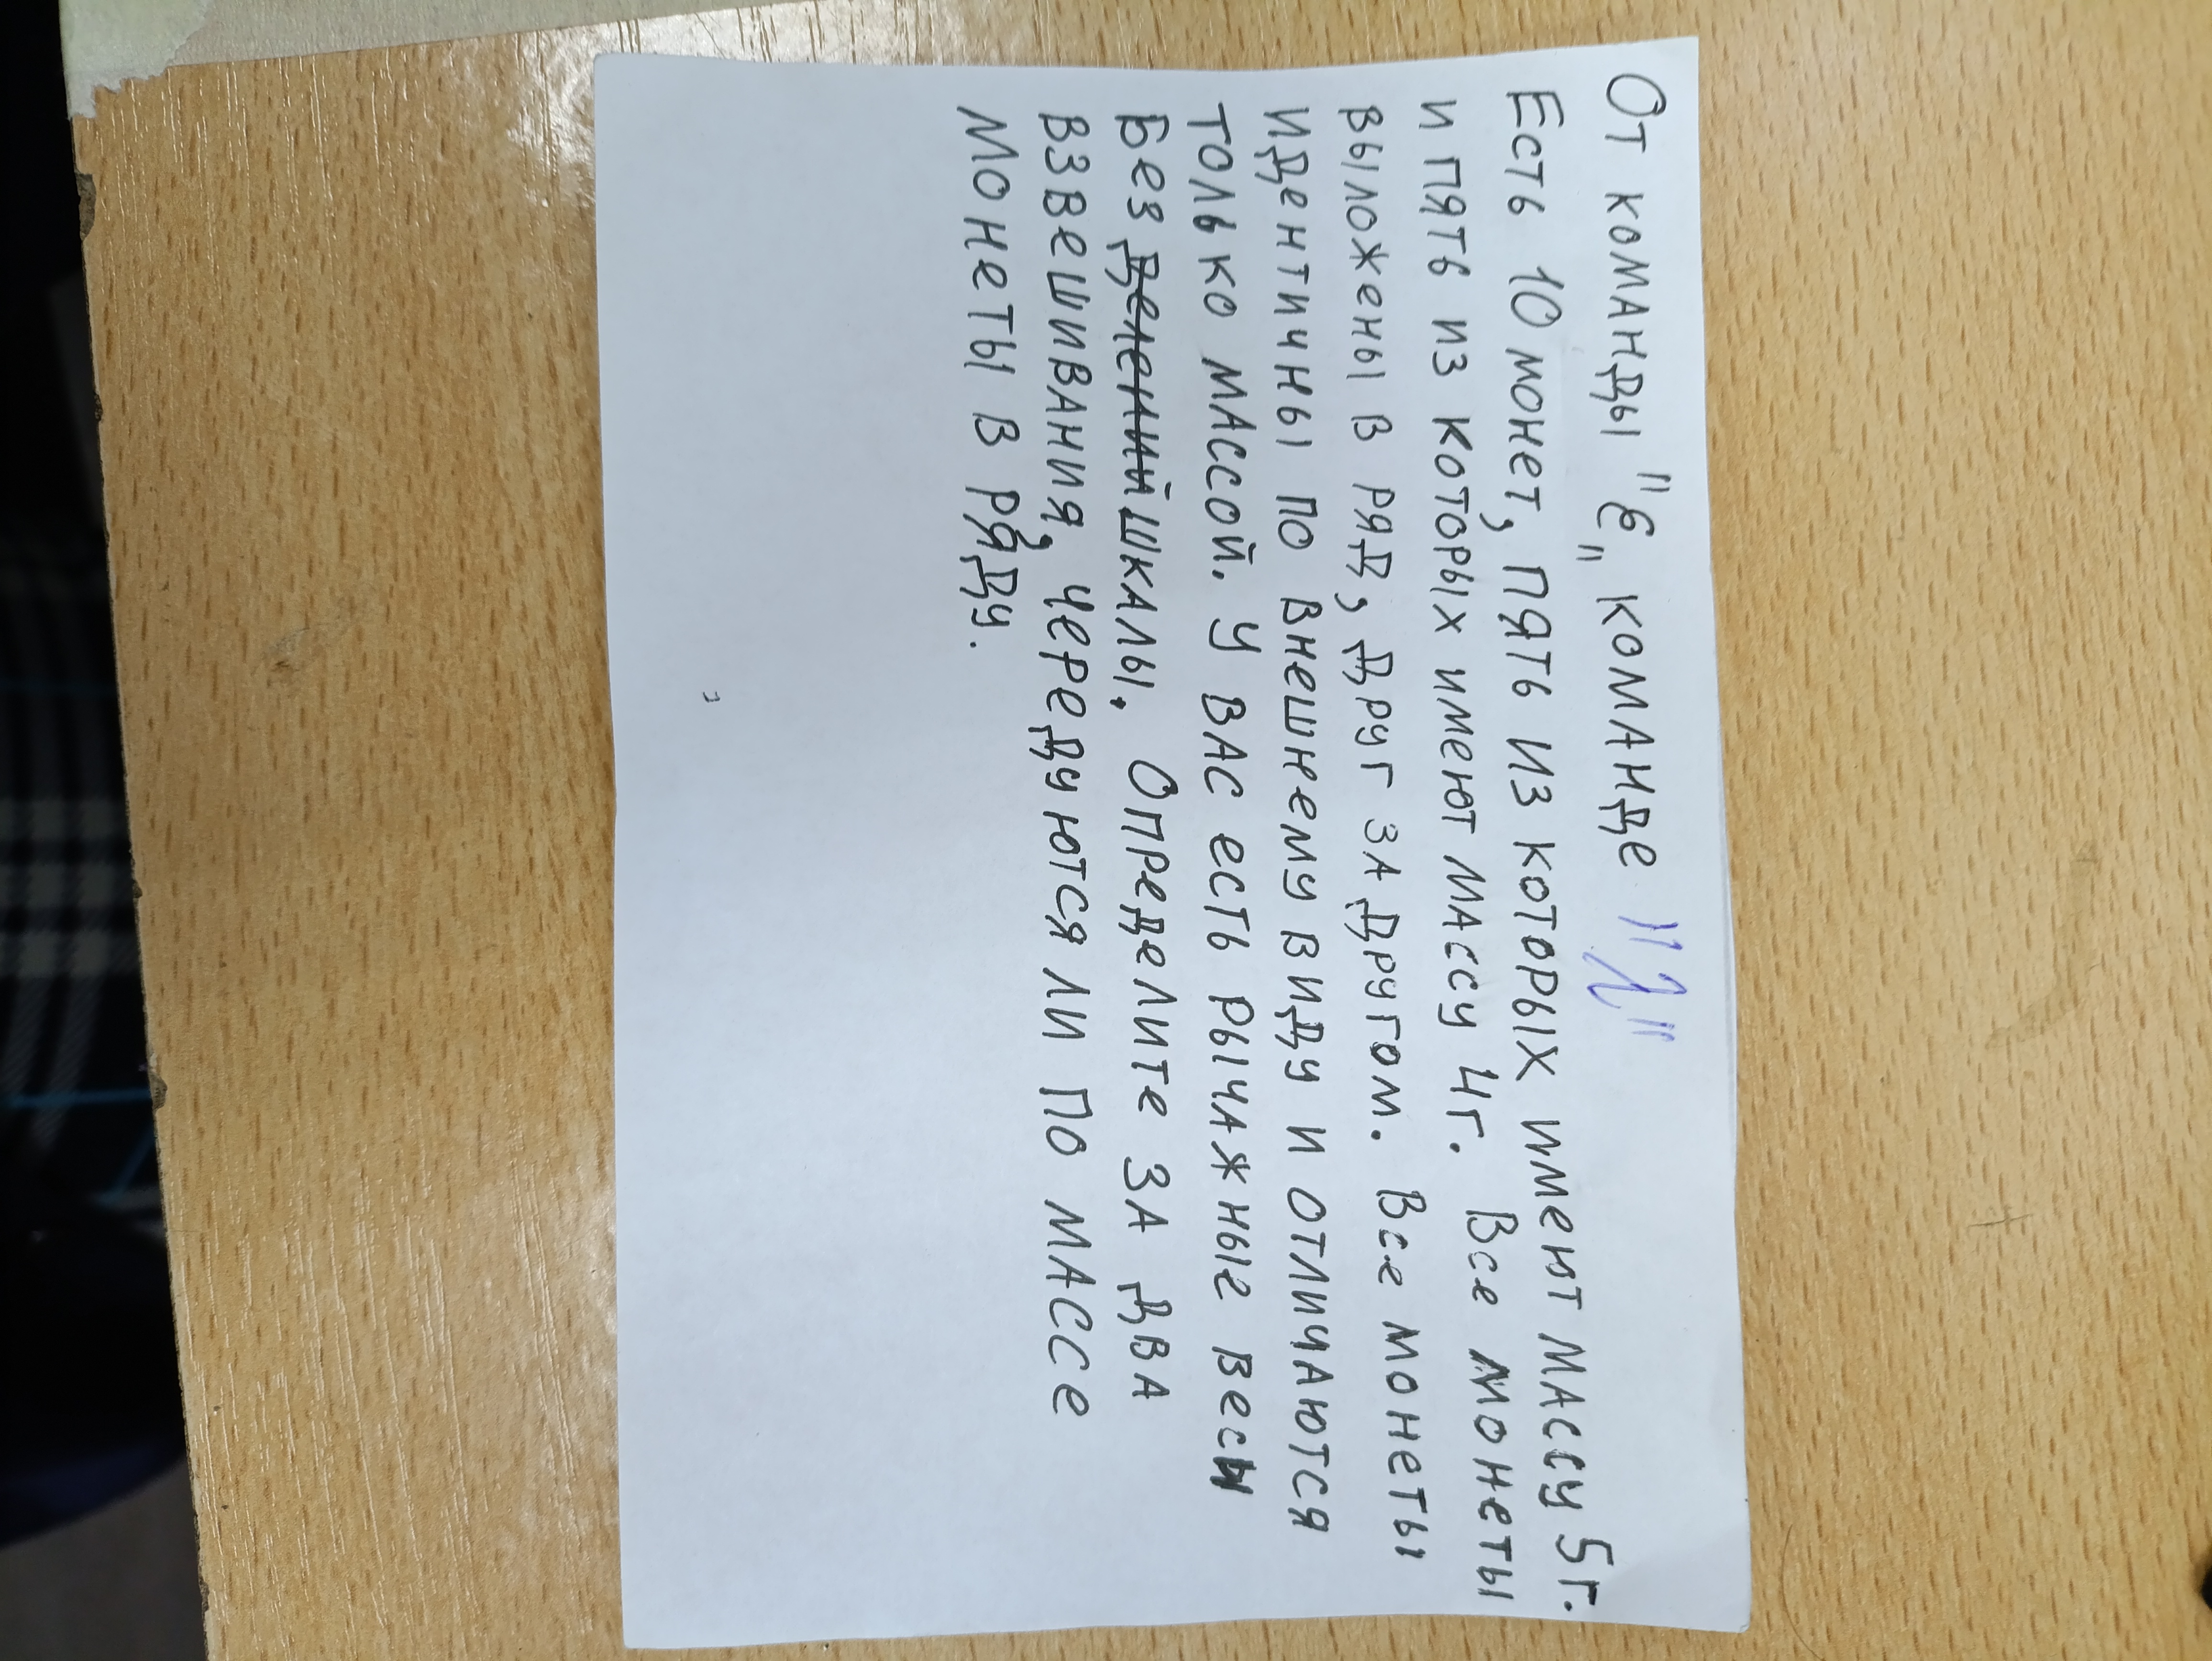 От команды "E" команде "1"
Есть 10 монет, пять из которых имеют массу 5г.
и пять из которых имеют массу 4г. Все монеты
выложены в ряд, друг за другом. Все монеты
идентичны по внешнему виду и отличаются
только массой. У вас есть рычажные весы
Без делений шкалы. Определите за два
взвешивания, чередуются ли по массе
монеты в ряду.